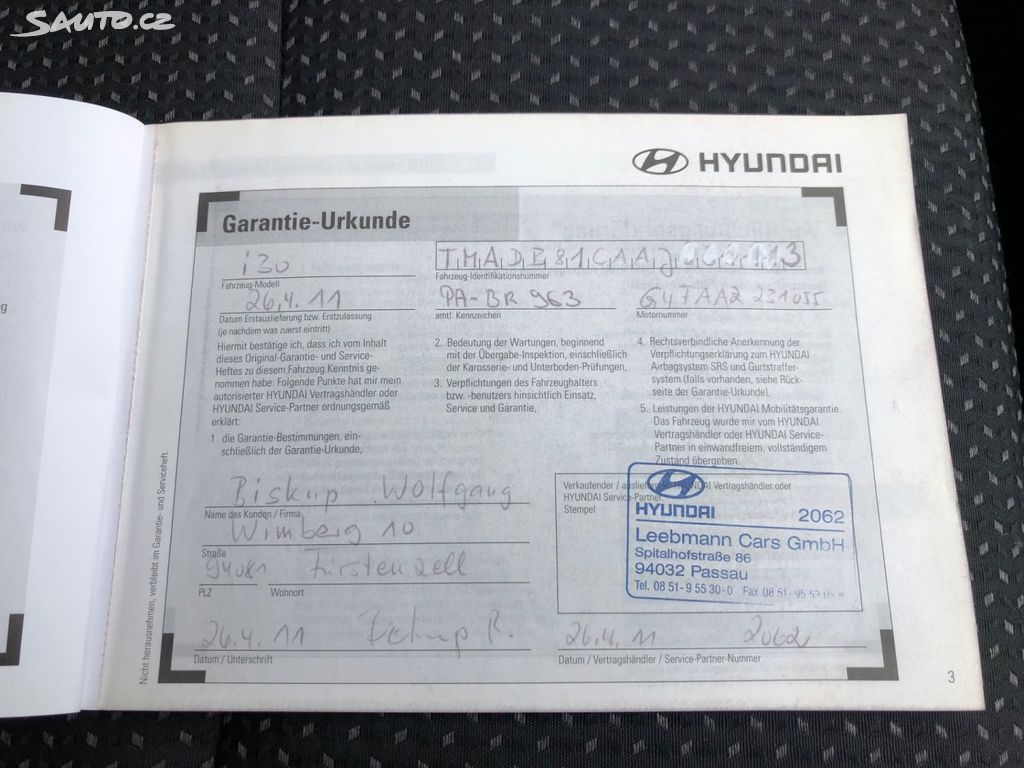 SAUTO.CZ
HYUNDAI
Garantie-Urkunde
i30
TMADB81CAAJ
Fahrzeug-Modell
Fahrzeug-Identifikationsnummer
26.4.11
PA-BR 963
Datum Erstauslieferung bzw. Erstzulassung
(je nachdem was zuerst eintritt)
amtl. Kennzeichen
Motornummer
Hiermit bestätige ich, dass ich vom Inhalt
dieses Original-Garantie- und Service-
Heftes zu diesem Fahrzeug Kenntnis ge-
nommen habe. Folgende Punkte hat mir mein
autorisierter HYUNDAI Vertragshändler oder
HYUNDAI Service-Partner ordnungsgemäß
erklärt:
1. die Garantie-Bestimmungen, ein-
schließlich der Garantie-Urkunde,
2. Bedeutung der Wartungen, beginnend
mit der Übergabe-Inspektion, einschließlich
der Karosserie- und Unterboden-Prüfungen,
3. Verpflichtungen des Fahrzeughalters
bzw. -benutzers hinsichtlich Einsatz,
Service und Garantie,
4. Rechtsverbindliche Anerkennung der
Verpflichtungserklärung zum HYUNDAI
Airbagsystem SRS und Gurtstraffer-
system (falls vorhanden, siehe Rück-
seite der Garantie-Urkunde).
5. Leistungen der HYUNDAI Mobilitätsgarantie.
Das Fahrzeug wurde mir vom HYUNDAI
Vertragshändler oder HYUNDAI Service-
Partner in einwandfreiem, vollständigem
Zustand übergeben.
Biskup Wolfgang
Name des Kunden / Firma
Wimberg 10
Straße
94081 Fürstenzell
PLZ Wohnort
26.4.11 Biskup R.
Datum / Unterschrift
Verkaufender / HYUNDAI Vertragshändler oder
HYUNDAI Service-Partner
Stempel
HYUNDAI 2062
Leebmann Cars GmbH
Spitalhofstraße 86
94032 Passau
Tel. 08 51-9 55 30-0 Fax 08 51-
26.4.11 2062
Datum / Vertragshändler / Service-Partner-Nummer
Nicht herausnehmen, verbleibt im Garantie- und Serviceheft.
3